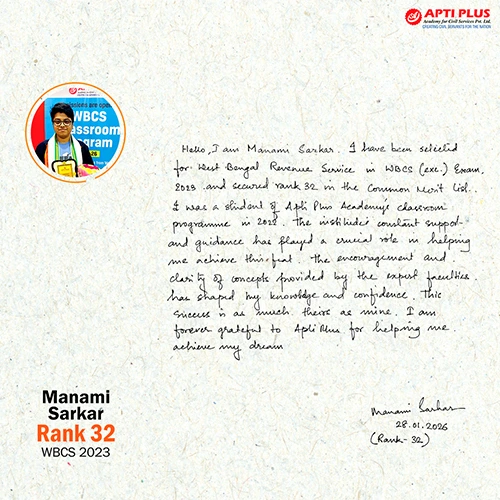 APTI PLUS
Academy for Civil Services Pvt. Ltd.
CREATING CIVIL SERVANTS FOR THE NATION
WBCS
Classroom
Program
Hello, I am Manami Sarkar. I have been selected
for West Bengal Revenue Service in WBCS (exe.) Exam.
2023 and secured rank 32 in the Common Merit List.
I was a student of Apti Plus Academy's classroom
programme in 2022. The institute's constant support
and guidance has played a crucial role in helping
me achieve this feat. The encouragement and
clarity of concepts provided by the expert faculties
has shaped my knowledge and confidence. This
success is as much theirs as mine. I am
forever grateful to Apti Plus for helping me
achieve my dream
Manami Sarkar
28.01.2026
(Rank-32)
Manami
Sarkar
Rank 32
WBCS 2023